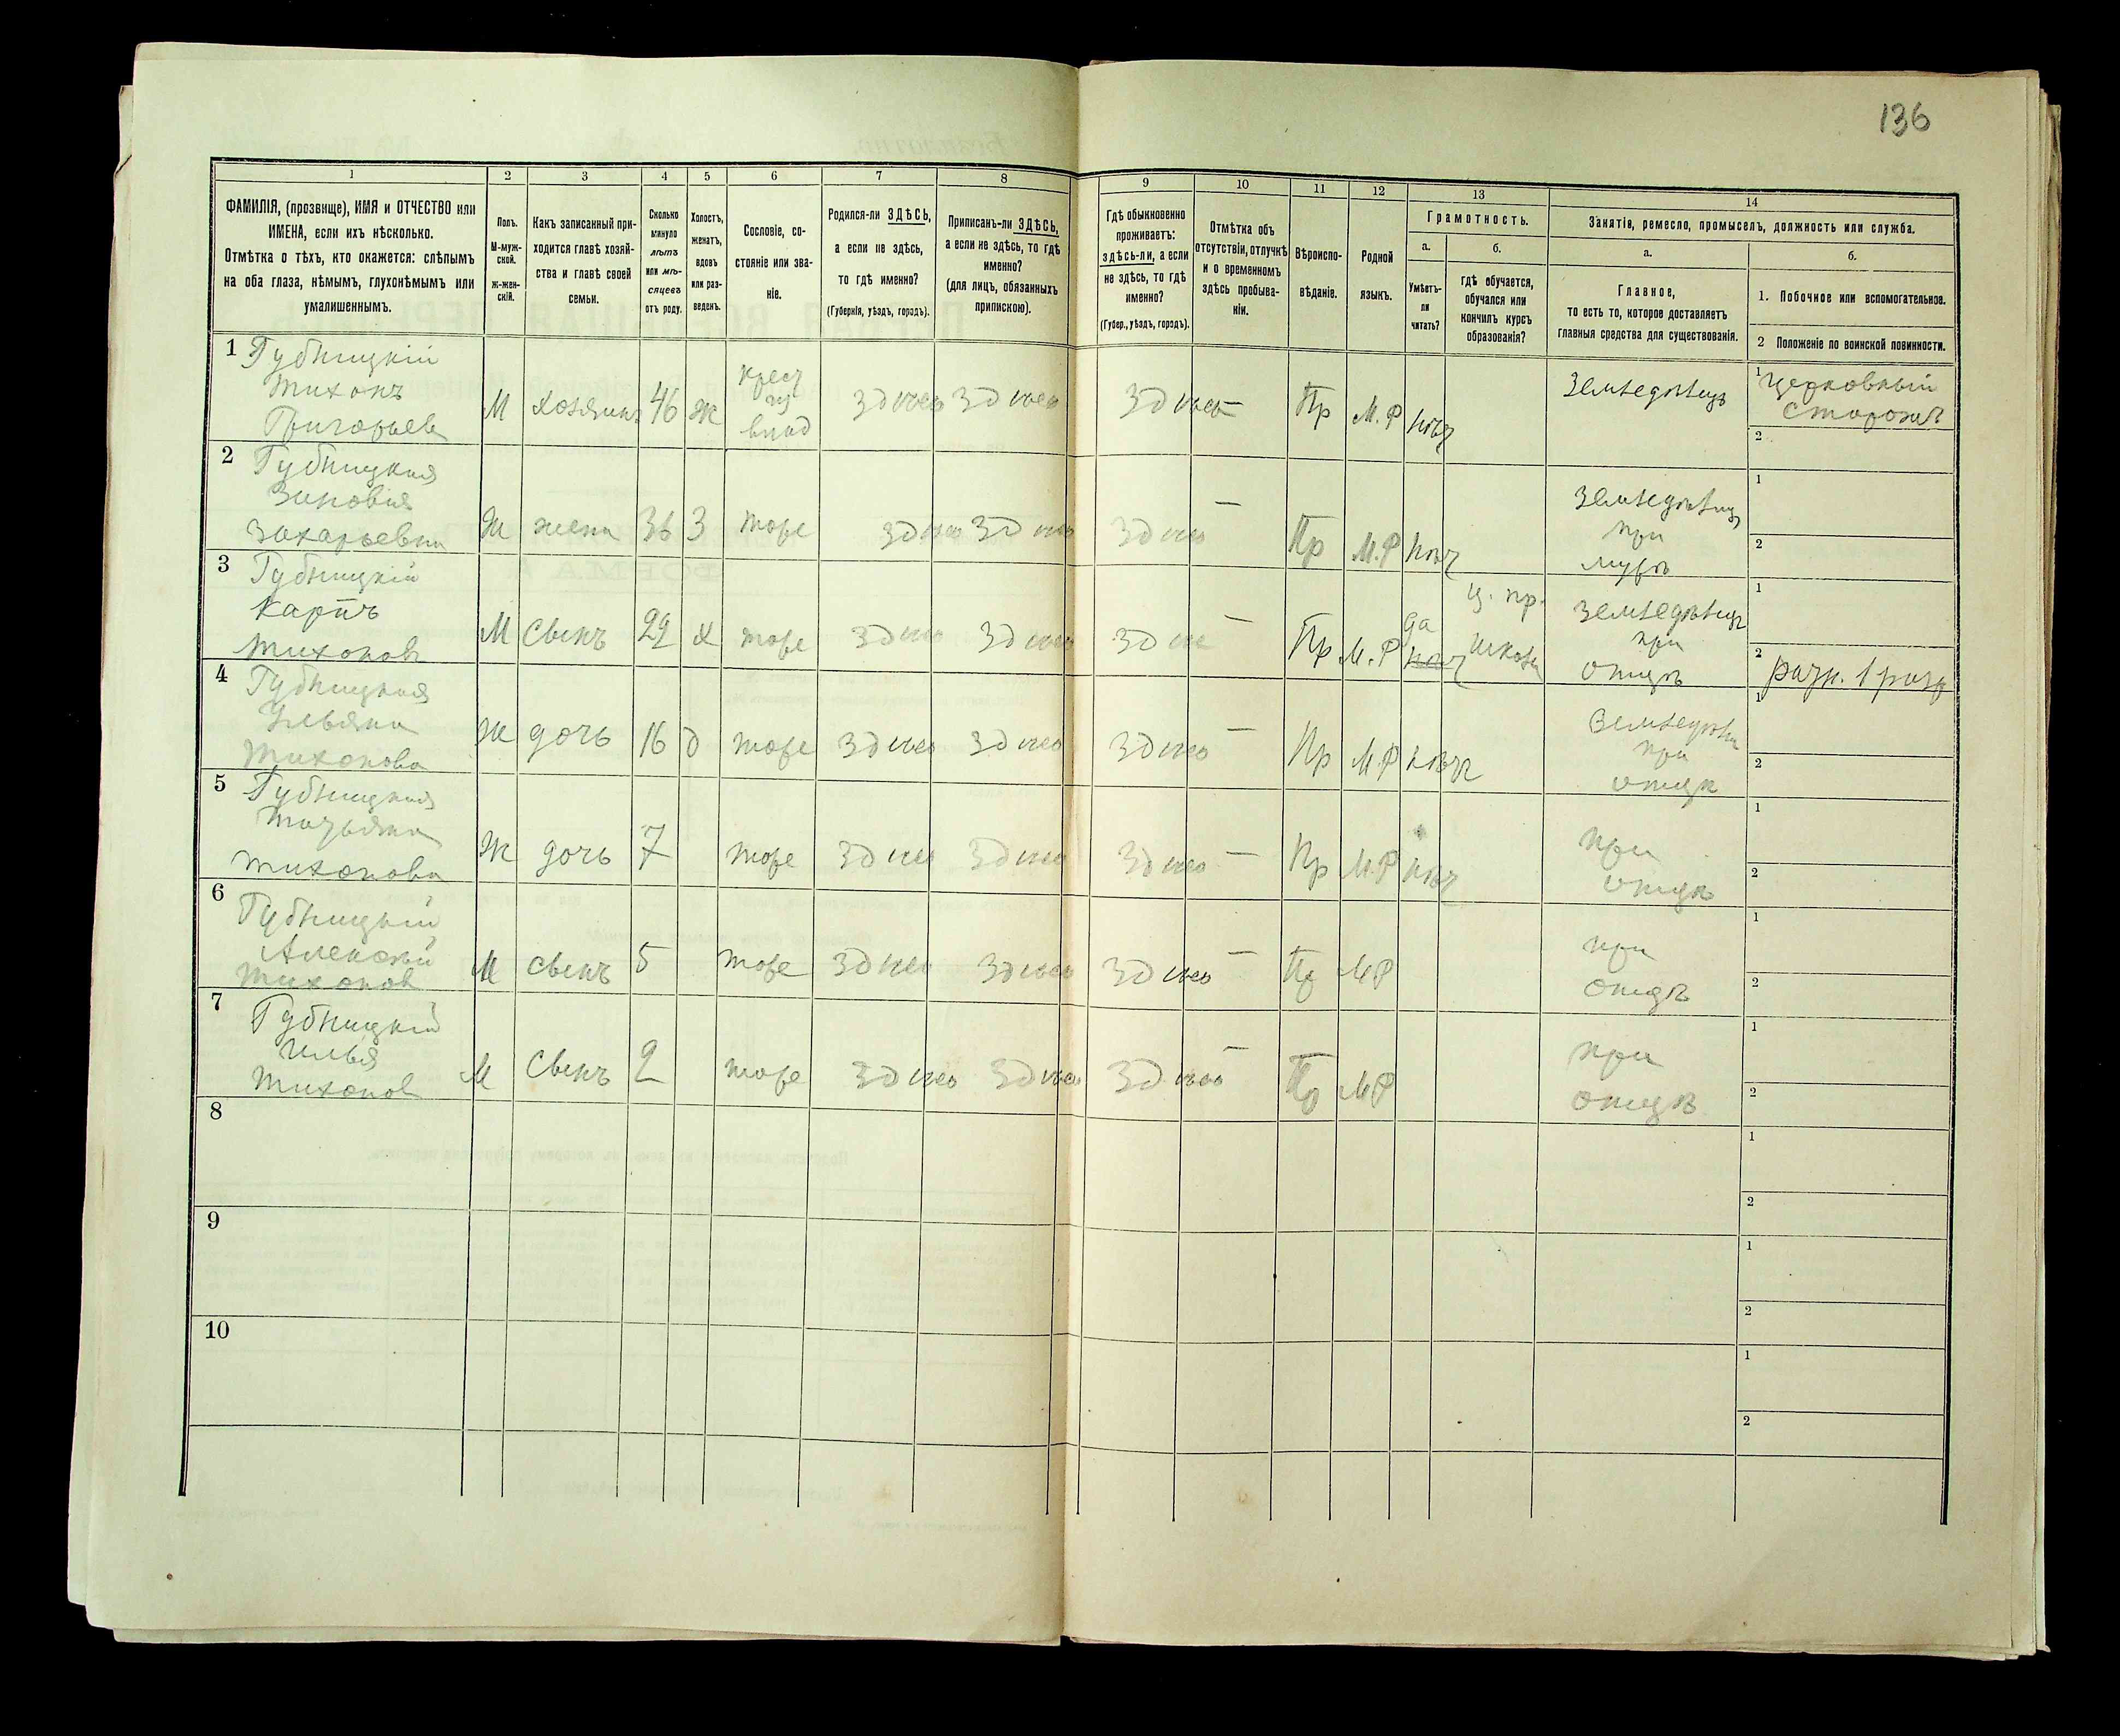 136
1
2
3
4
5
6
7
8
9
10
11
12
13
14
ФАМИЛІЯ, (прозвище), ИМЯ и ОТЧЕСТВО или
ИМЕНА, если ихъ нѣсколько.
Отмѣтка о тѣхъ, кто окажется: слѣпымъ
на оба глаза, нѣмымъ, глухонѣмымъ или
умалишеннымъ.
Полъ.
М-муж-
ской.
Ж-жен-
скій.
Какъ записанный при-
ходится главѣ хозяй-
ства и главѣ своей
семьи.
Сколько
минуло
лѣтъ
или мѣ-
сяцевъ
отъ роду.
Холостъ,
женатъ,
вдовъ
или раз-
веденъ.
Сословіе, со-
стояніе или зва-
ніе.
Родился-ли ЗДѢСЬ,
а если не здѣсь,
то гдѣ именно?
(Губернія, уѣздъ, городъ).
Приписанъ-ли ЗДѢСЬ,
а если не здѣсь, то гдѣ
именно?
(для лицъ, обязанныхъ
припискою).
Гдѣ обыкновенно
проживаетъ:
здѣсь-ли, а если
не здѣсь, то гдѣ
именно?
(Губер., уѣздъ, городъ).
Отмѣтка объ
отсутствіи, отлучкѣ
и о временномъ
здѣсь пребыва-
ніи.
Вѣроиспо-
вѣданіе.
Родной
языкъ.
Грамотность.
а.
б.
Умѣетъ-
ли
читать?
гдѣ обучается,
обучался или
кончилъ курсъ
образованія?
Занятія, ремесло, промыселъ, должность или служба.
а.
б.
Главное,
то есть то, которое доставляетъ
главныя средства для существованія.
1. Побочное или вспомогательное.
2 Положеніе по воинской повинности.
1 Губницкій
Тихонъ
Григорьевъ
М хозяинъ 46 ж
крест
из
влад
здѣсь здѣсь здѣсь — Пр М.Р нѣт
Земледѣлецъ
1 церковный
сторожъ
2
2 Губницкая
Зиновія
Захарьевна
Ж жена 36 З тоже здѣсь здѣсь здѣсь — Пр М.Р нѣт
Земледѣлец
при
мужѣ
1
2
3 Губницкій
Карпъ
Тихоновъ
М сынъ 22 х тоже здѣсь здѣсь здѣсь — Пр М.Р да
нѣт
ц. пр.
школа
Земледѣлецъ
при
отцѣ
1
2 ратн. 1 разр
4 Губницкая
Ульяна
Тихонова
Ж дочь 16 д тоже здѣсь здѣсь здѣсь — Пр М.Р нѣт
Земледѣлец
при
отцѣ
1
2
5 Губницкая
Татьяна
Тихонова
Ж дочь 7 тоже здѣсь здѣсь здѣсь — Пр М.Р нѣт
при
отцѣ
1
2
6 Губницкій
Алексѣй
Тихонов
М сынъ 5 тоже здѣсь здѣсь здѣсь — Пр М.Р
при
отцѣ
1
2
7 Губницкій
Илья
Тихонов
М сынъ 2 тоже здѣсь здѣсь здѣсь — Пр М.Р
при
отцѣ
1
2
8
1
2
9
1
2
10
1
2